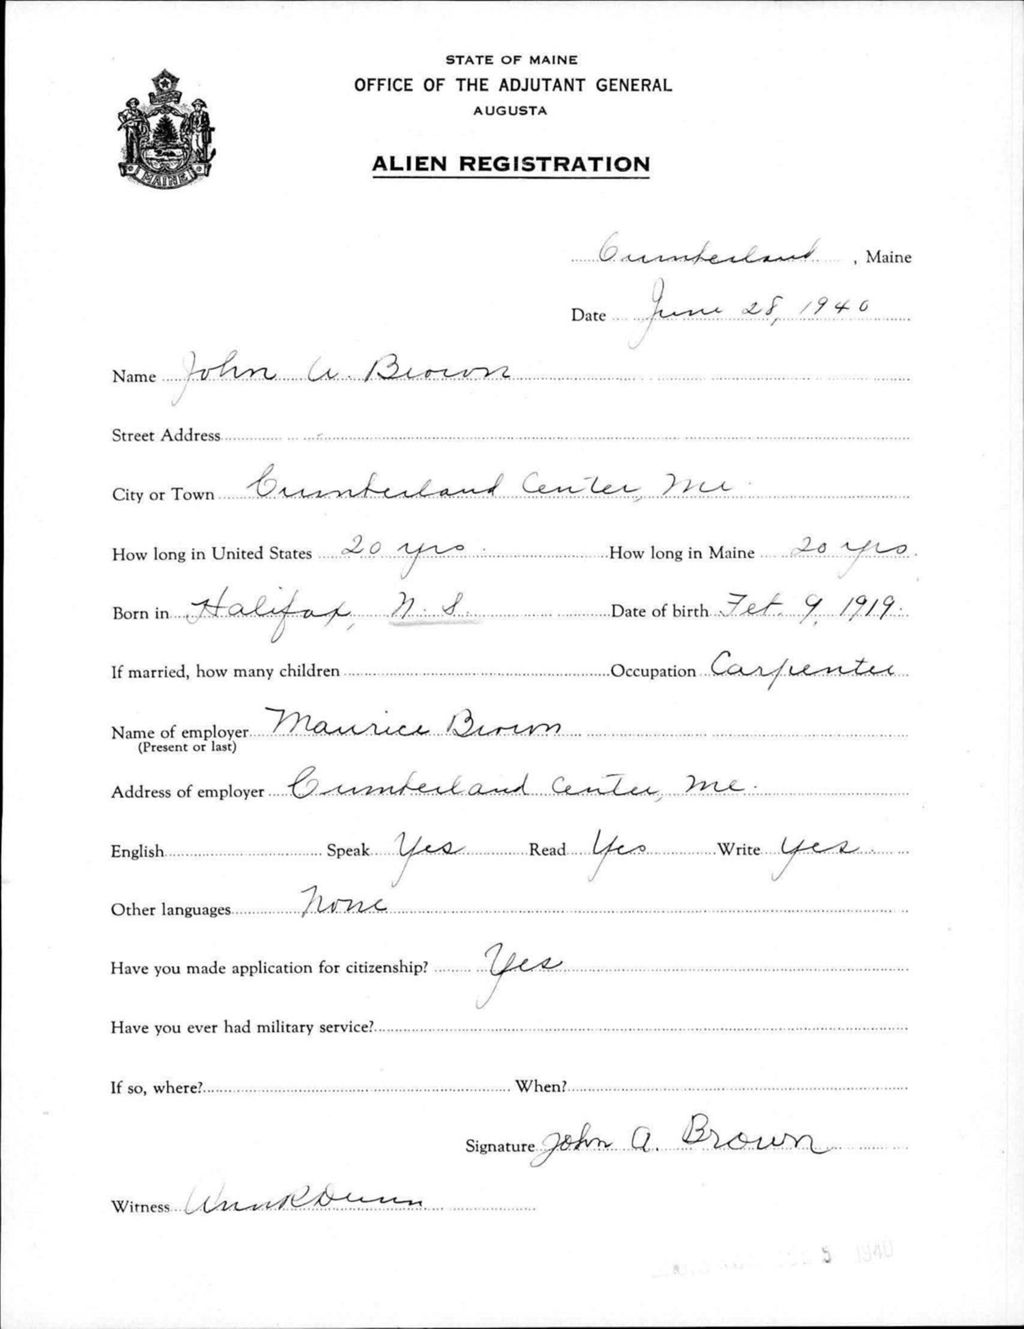 STATE OF MAINE
OFFICE OF THE ADJUTANT GENERAL
AUGUSTA
MAINE
ALIEN REGISTRATION
Cumberland, Maine
Date June 28, 1940
Name John A. Brown
Street Address
City or Town Cumberland Center, Me.
How long in United States 20 yrs. How long in Maine 20 yrs.
Born in Halifax, N.S. Date of birth Feb. 9, 1919.
If married, how many children Occupation Carpenter
Name of employer Maurice Brown
(Present or last)
Address of employer Cumberland Center, Me.
English Speak Yes Read Yes Write yes.
Other languages None
Have you made application for citizenship? Yes
Have you ever had military service?
If so, where? When?
Signature John A. Brown
Witness Ann R Dunn
5 1940